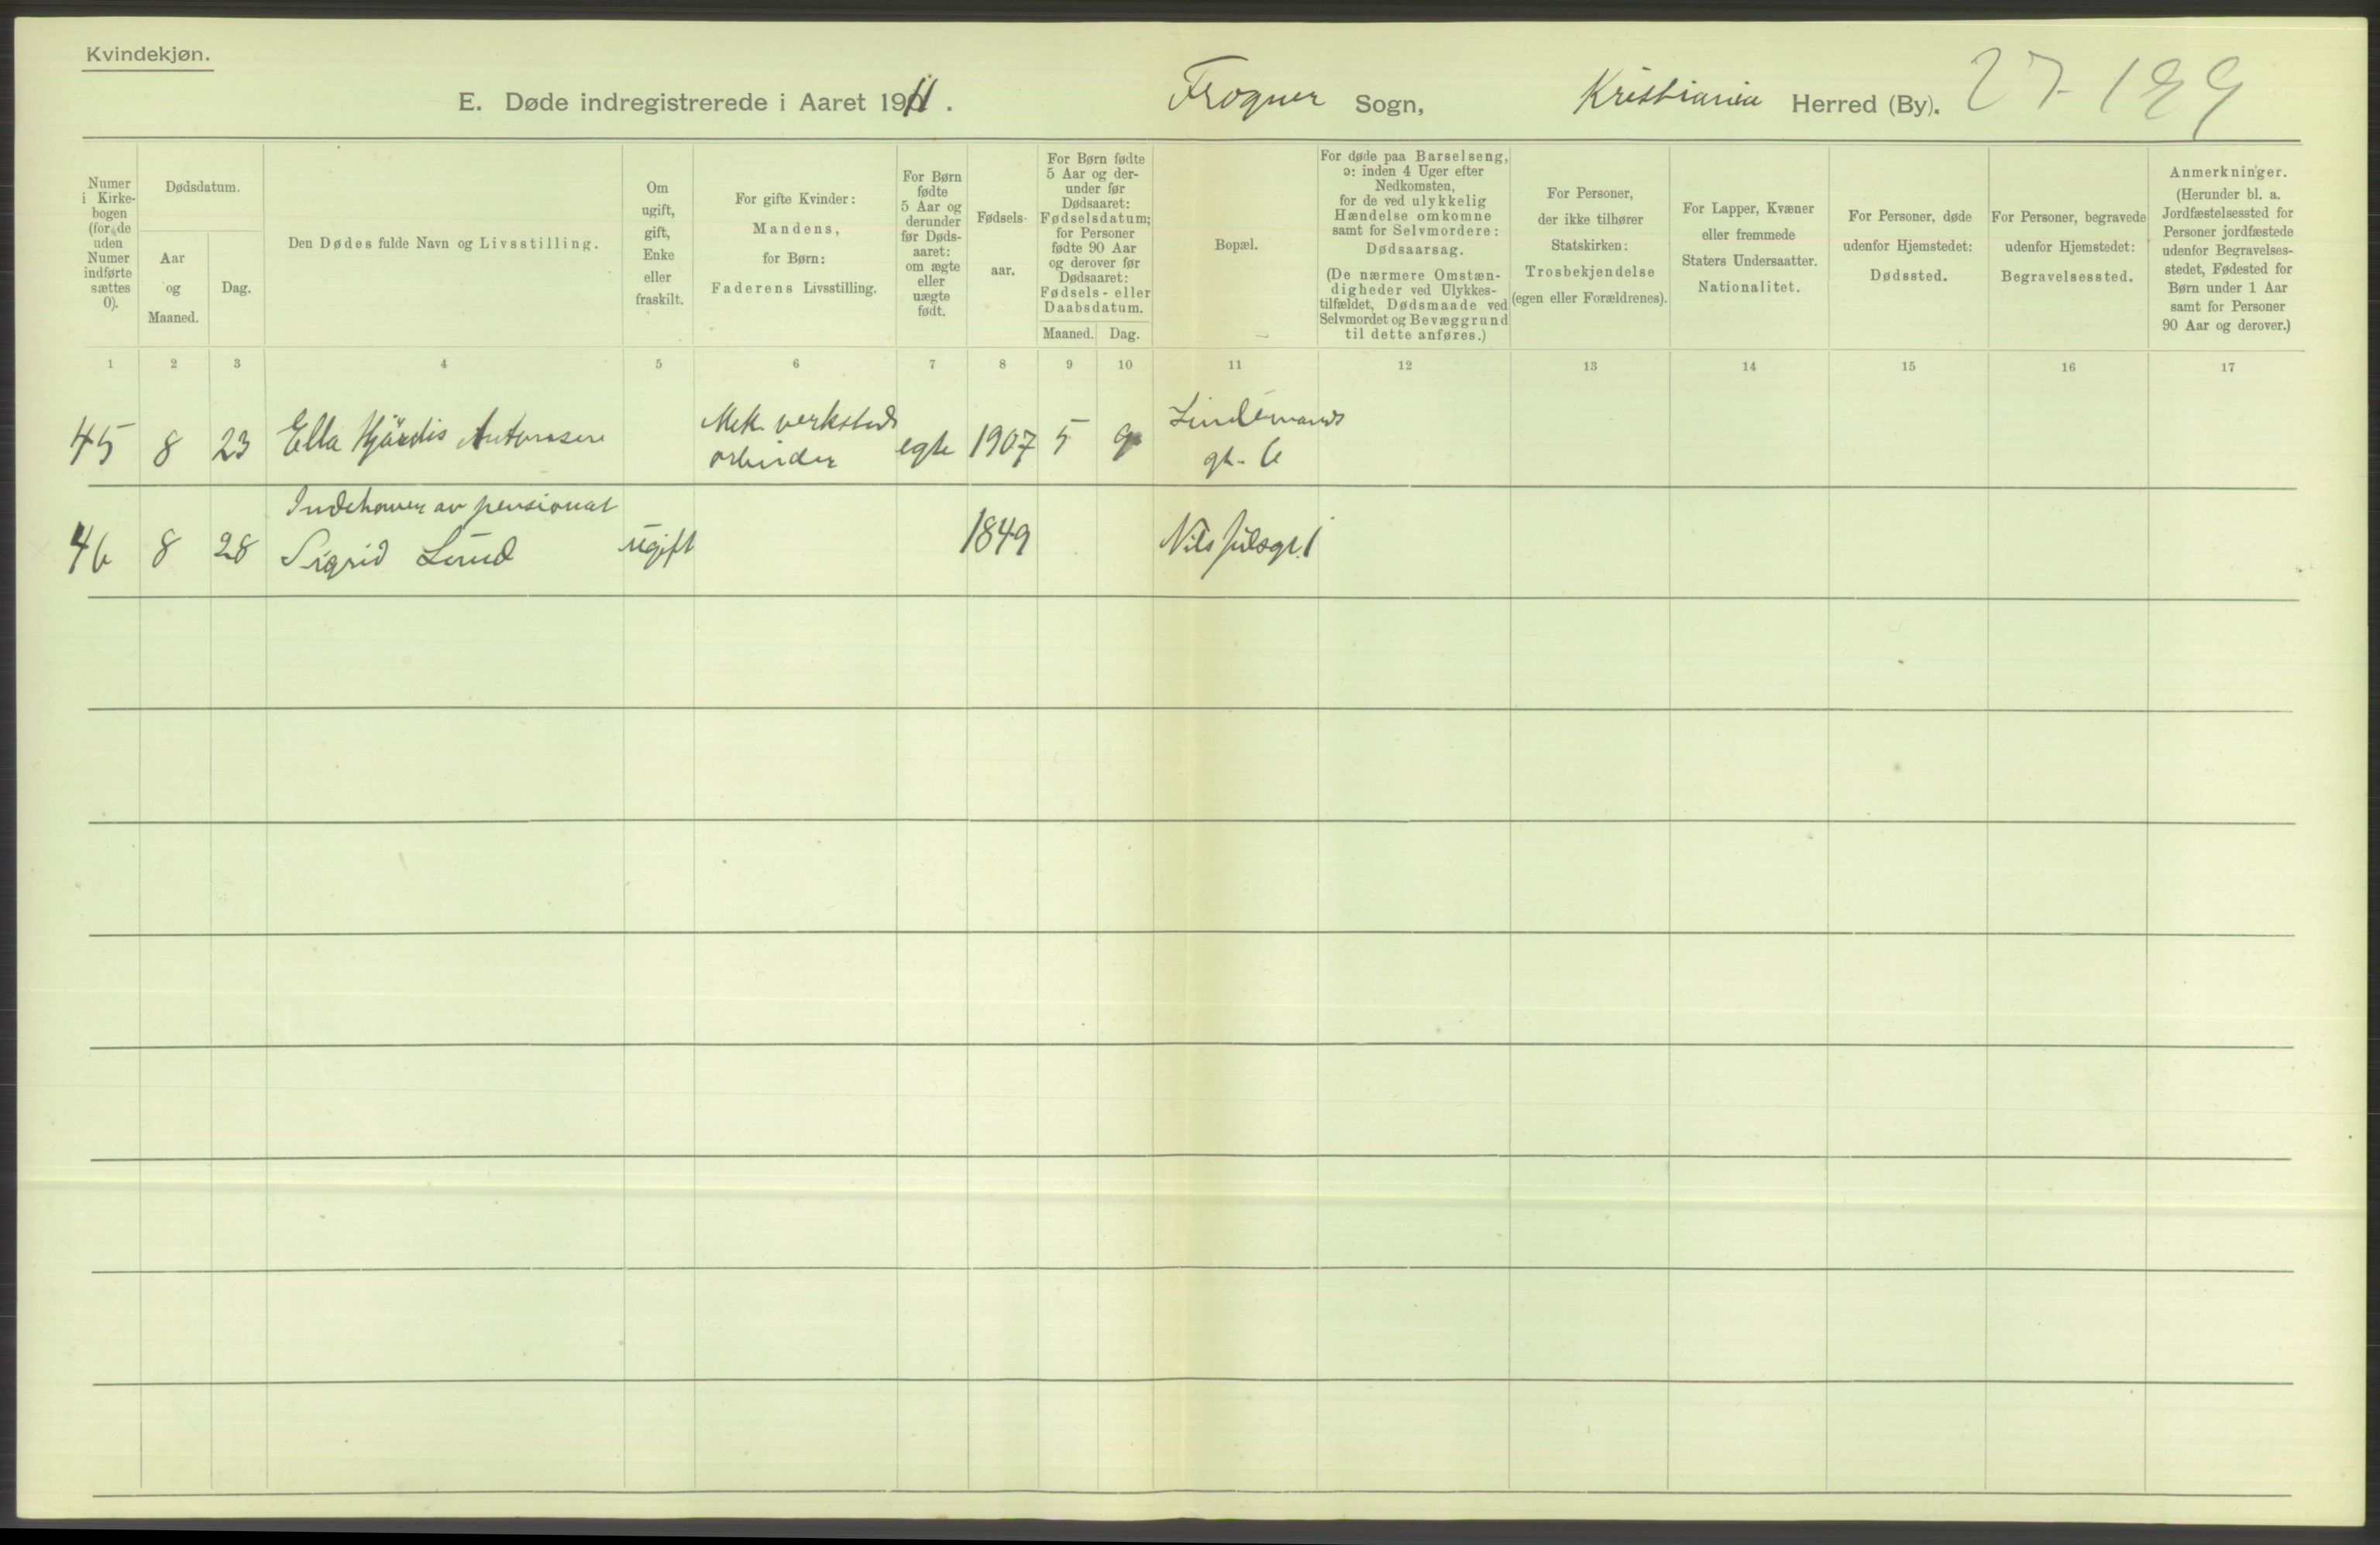 Kvindekjøn.
E. Døde indregistrerede i Aaret 1911. Frogner Sogn, Kristiania Herred (By). 27-
Numer
i Kirke-
bogen
(for de
uden
Numer
indførte
sættes
0).
Dødsdatum.
Aar
og
Maaned.
Dag.
Den Dødes fulde Navn og Livsstilling.
Om
ugift,
gift,
Enke
eller
fraskilt.
For gifte Kvinder:
Mandens,
for Børn:
Faderens Livsstilling.
For Børn
fødte
5 Aar og
derunder
før Døds-
aaret:
om ægte
eller
uægte
født.
Fødsels-
aar.
For Børn fødte
5 Aar og der-
under før
Dødsaaret:
Fødselsdatum;
for Personer
fødte 90 Aar
og derover før
Dødsaaret:
Fødsels- eller
Daabsdatum.
Maaned. Dag.
Bopæl.
For døde paa Barselseng,
ɔ: inden 4 Uger efter
Nedkomsten,
for de ved ulykkelig
Hændelse omkomne
samt for Selvmordere:
Dødsaarsag.
(De nærmere Omstæn-
digheder ved Ulykkes-
tilfældet, Dødsmaade ved
Selvmordet og Bevæggrund
til dette anføres.)
For Personer,
der ikke tilhører
Statskirken:
Trosbekjendelse
(egen eller Forældrenes).
For Lapper, Kvæner
eller fremmede
Staters Undersaatter.
Nationalitet.
For Personer, døde
udenfor Hjemstedet:
Dødssted.
For Personer, begravede
udenfor Hjemstedet:
Begravelsessted.
Anmerkninger.
(Herunder bl. a.
Jordfæstelsessted for
Personer jordfæstede
udenfor Begravelses-
stedet, Fødested for
Børn under 1 Aar
samt for Personer
90 Aar og derover.)
1 2 3 4 5 6 7 8 9 10 11 12 13 14 15 16 17
Mek. verksteds Lindemans
45 8 23 Ella Hjördis arbeider egte 1907 5 9 gt. 6
Indehaver av pensionat
46 8 28 Sigrid Lund ugift 1849 Nils Julsgt. 1